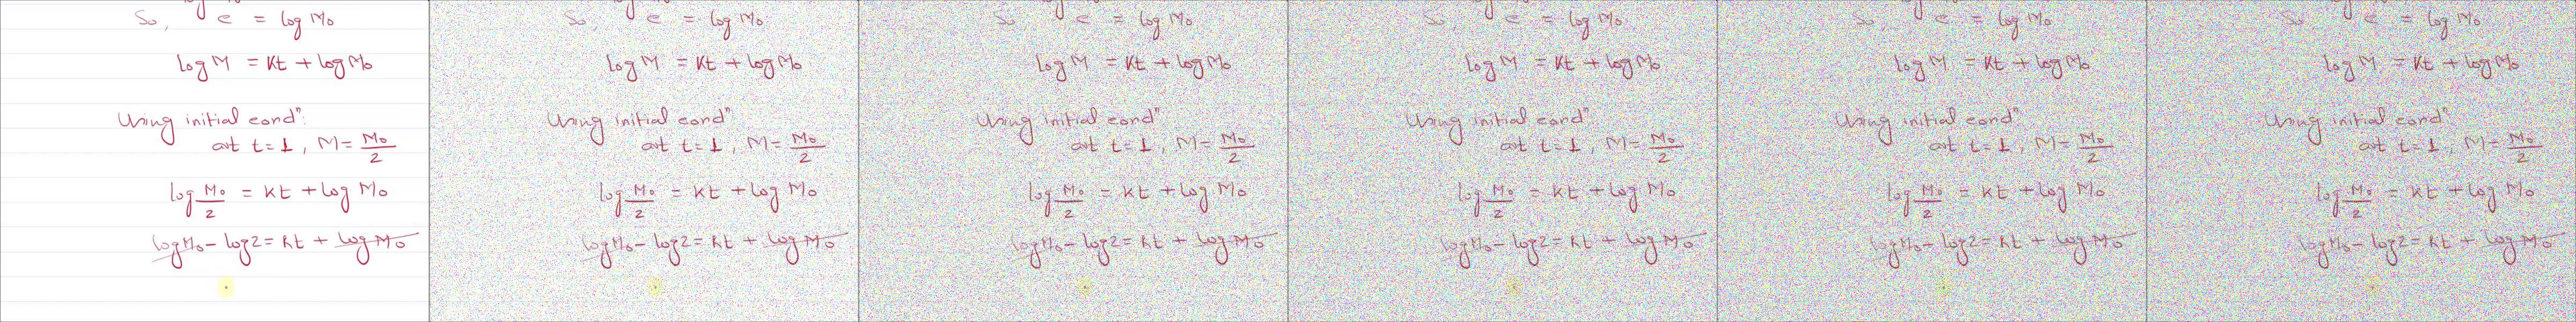 So, c = log M₀
log M = Kt + log M₀
Using initial condⁿ:
at t=1, M= M₀/2
log M₀/2 = kt + log M₀
log M₀ - log 2 = kt + log M₀
So, c = log M₀
log M = Kt + log M₀
Using initial condⁿ:
at t=1, M= M₀/2
log M₀/2 = kt + log M₀
log M₀ - log 2 = kt + log M₀
So, c = log M₀
log M = Kt + log M₀
Using initial condⁿ:
at t=1, M= M₀/2
log M₀/2 = kt + log M₀
log M₀ - log 2 = kt + log M₀
So, c = log M₀
log M = Kt + log M₀
Using initial condⁿ:
at t=1, M= M₀/2
log M₀/2 = kt + log M₀
log M₀ - log 2 = kt + log M₀
So, c = log M₀
log M = Kt + log M₀
Using initial condⁿ:
at t=1, M= M₀/2
log M₀/2 = kt + log M₀
log M₀ - log 2 = kt + log M₀
So, c = log M₀
log M = Kt + log M₀
Using initial condⁿ:
at t=1, M= M₀/2
log M₀/2 = kt + log M₀
log M₀ - log 2 = kt + log M₀